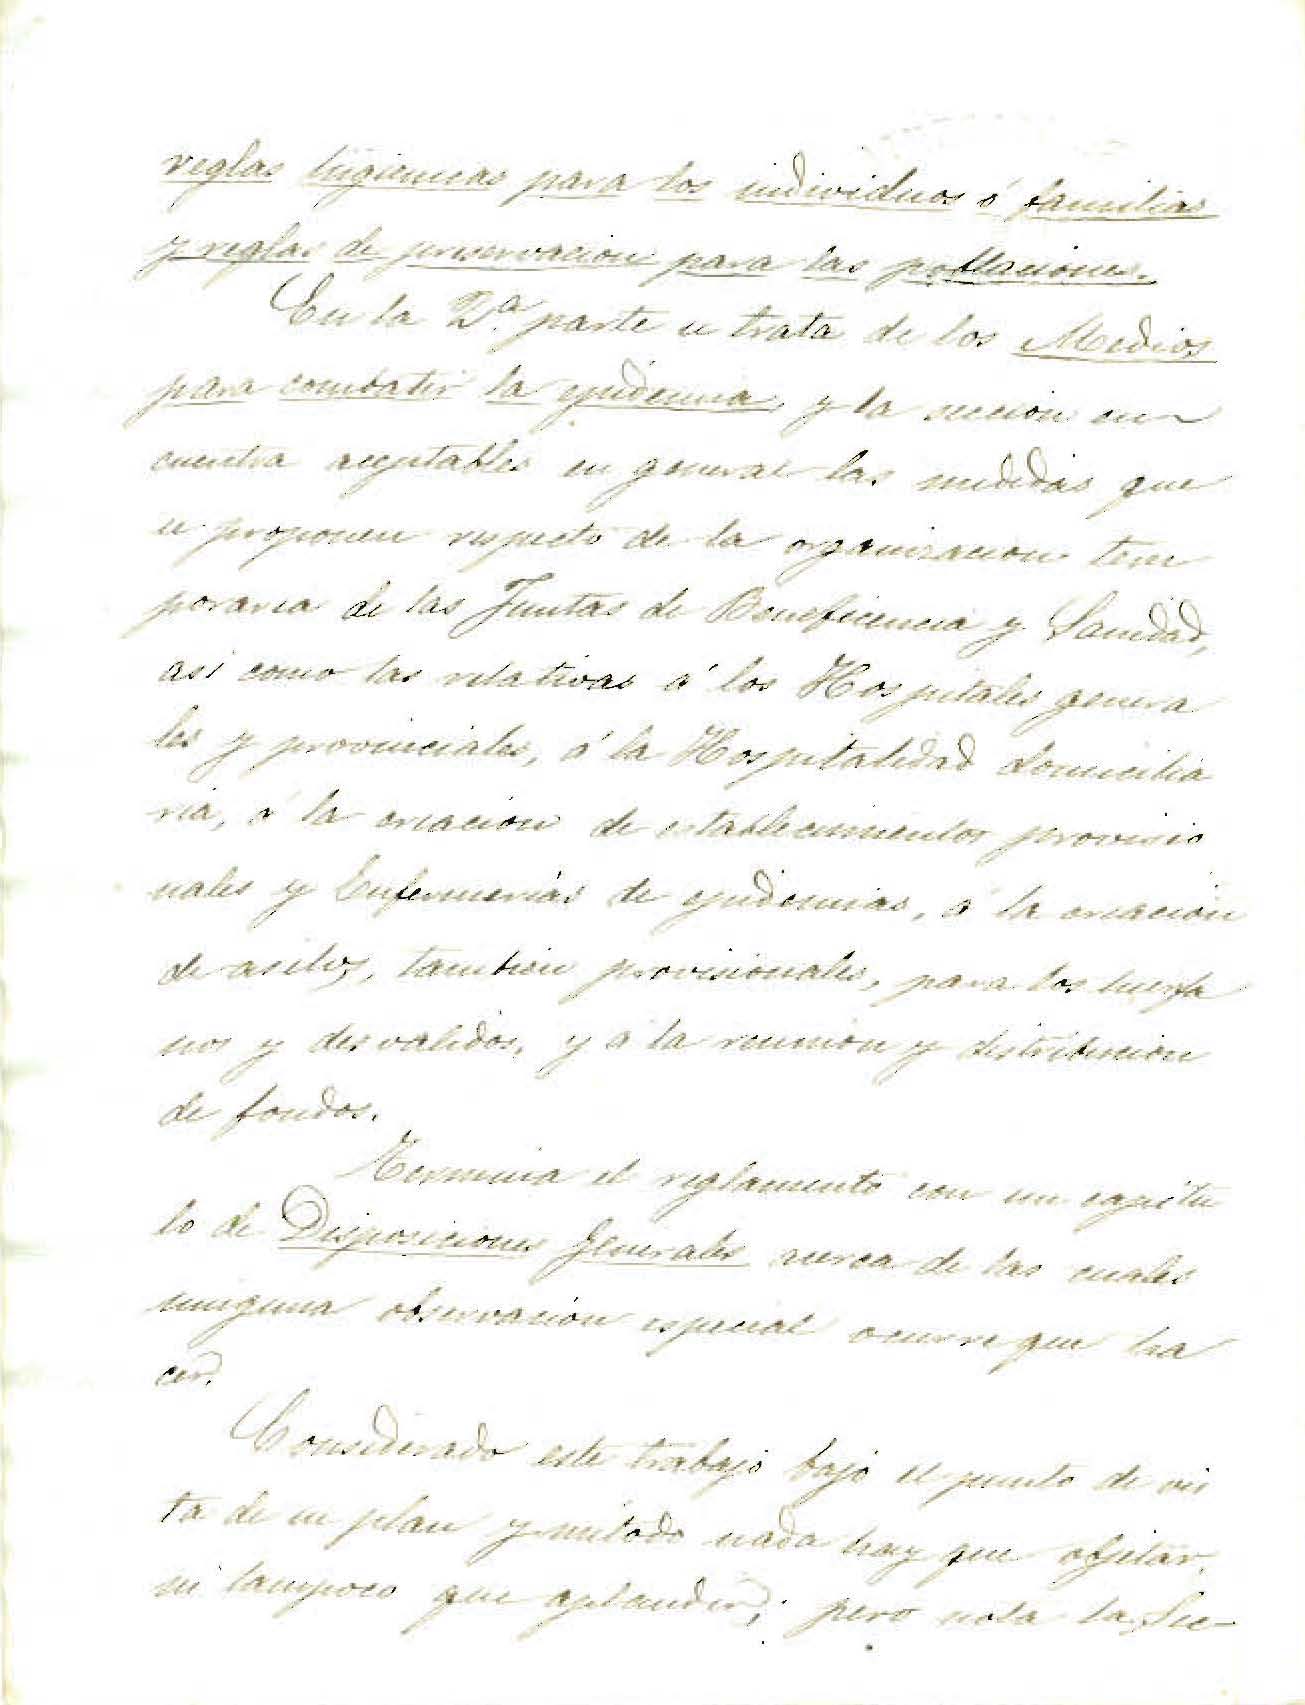 reglas higienicas para los individuos ó familias
y reglas de preservacion para las poblaciones.
En la 2.ª parte se trata de los Medios
para combatir la epidemia, y la seccion en-
cuentra aceptables en general las medidas que
se proponen respecto de la organizacion tem
poraria de las Juntas de Beneficencia y Sanidad,
asi como las relativas á los Hospitales genera
les y provinciales, á la Hospitalidad domicilia
ria, á la creacion de establecimientos provisio
nales y Enfermerias de epidemias, á la creacion
de asilos, tambien provisionales, para los huerfa
nos y desvalidos, y á la reunion y distribucion
de fondos.
Termina el reglamento con un capitu
lo de Disposiciones generales acerca de las cuales
ninguna observacion especial ocurre que ha
cer.
Considerado este trabajo bajo el punto de vis
ta de su plan y metodo nada hay que objetar,
ni tampoco que aplaudir; pero nota la Sec-